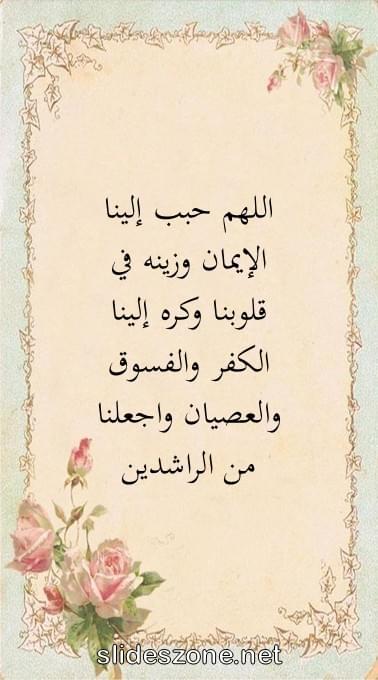 اللهم حبب إلينا
الإيمان وزينه في
قلوبنا وكره إلينا
الكفر والفسوق
والعصيان واجعلنا
من الراشدين
slideszone.net